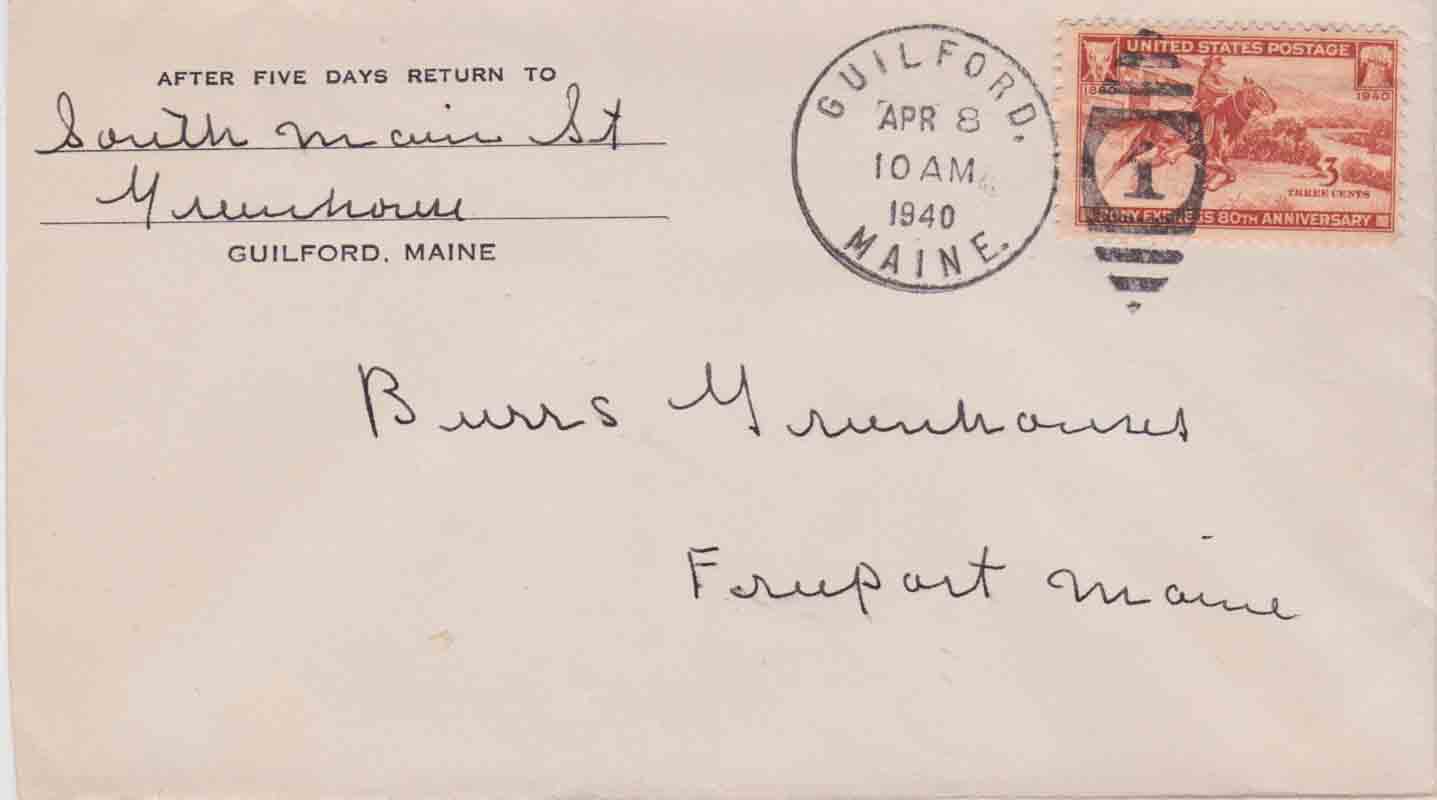 AFTER FIVE DAYS RETURN TO
South Main St
Greenhouse
GUILFORD, MAINE
GUILFORD,
APR 8
10 AM
1940
MAINE.
UNITED STATES POSTAGE
1860
1940
1
3
THREE CENTS
PONY EXPRESS 80TH ANNIVERSARY
Burrs Greenhouses
Freeport Maine